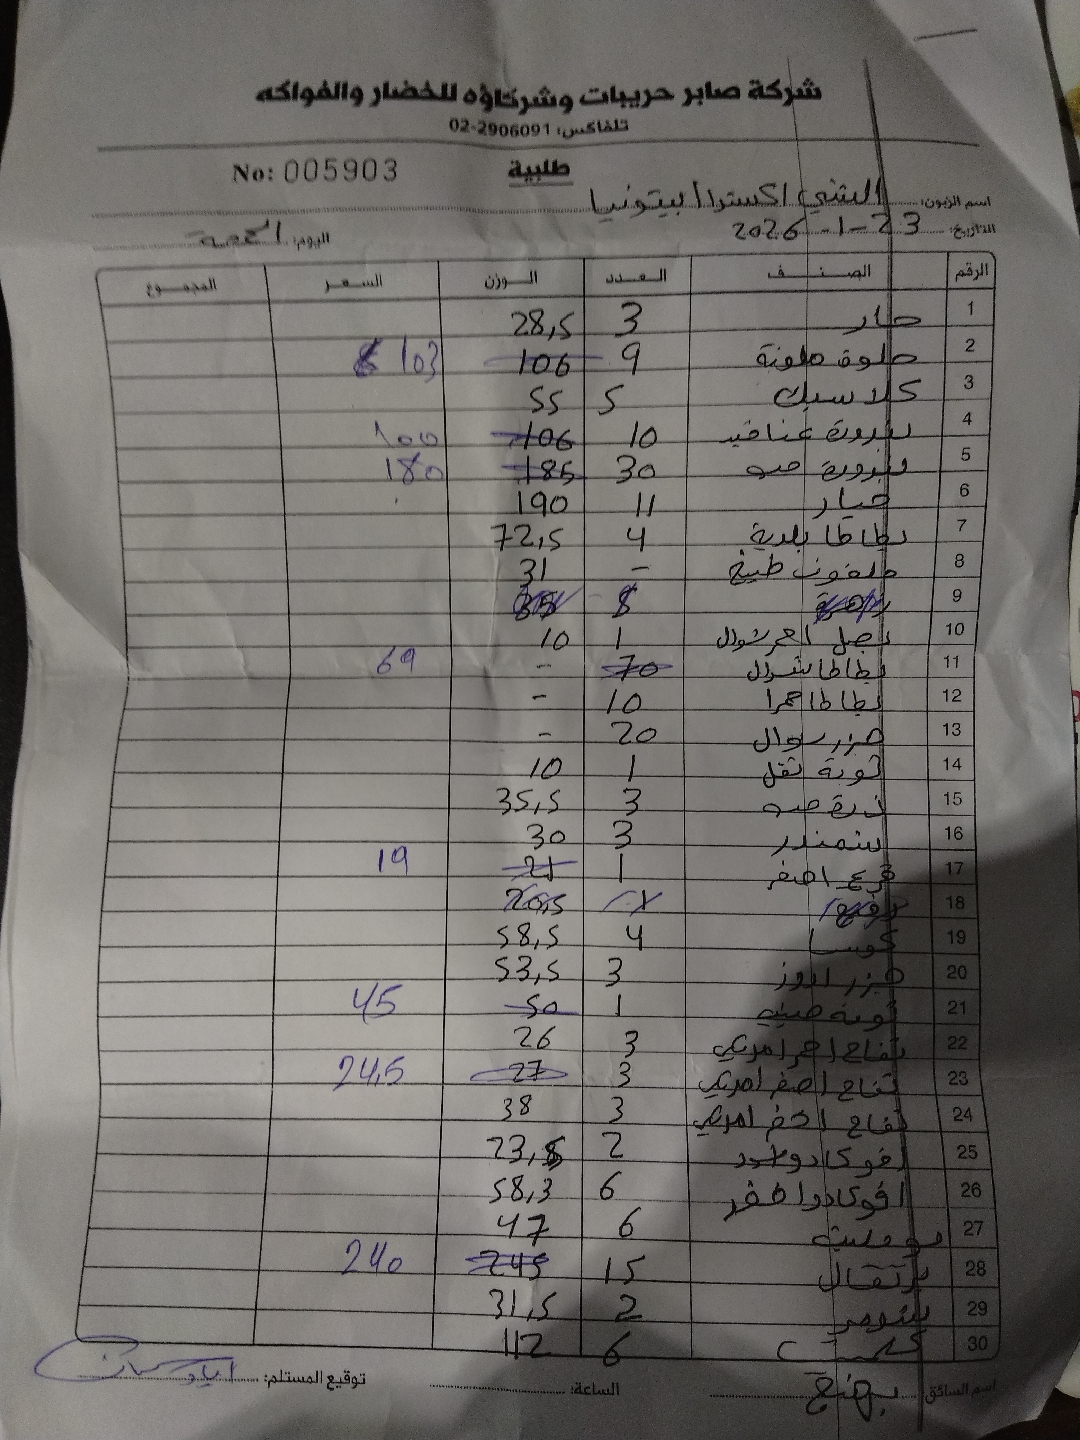 شركة صابر حريبات وشركاؤه للخضار والفواكه
تلفاكس: 02-2906091
طلبية
No: 005903
اسم الزبون: الشني اكسترا / بيتونيا
التاريخ: 23-1-2026 اليوم: الجمعة
الرقم الصنف العدد الوزن السعر المجموع
1 حار 3 28,5
2 حلوة ملونة 9 106 103
3 كلاسيك 5 55
4 بندورة عناقيد 10 106 100
5 بندورة حب 30 185 180
6 خيار 11 190
7 بطاطا بلدية 4 72,5
8 ملفوف طبيخ - 31
9 8 35
10 بصل احمر شوال 1 10
11 بطاطا شوال 70 - 69
12 بطاطا حمرا 10 -
13 جزر شوال 20 -
14 ثومة تقل 1 10
15 ذرة حب 3 35,5
16 شمندر 3 30
17 قرع اصفر 1 21 19
18 20,5
19 كوسا 4 58,5
20 جزر 3 53,5
21 ثومة 1 50 45
22 تفاح احمر امريكي 3 26
23 تفاح اصفر امريكي 3 27 24,5
24 تفاح اخضر امريكي 3 38
25 افوكادو 2 23,5
26 افوكادوا 6 58,3
27 بوملي 6 47
28 برتقال 15 245 240
29 شومر 2 31,5
30 6 112
اسم السائق: الساعة: توقيع المستلم: